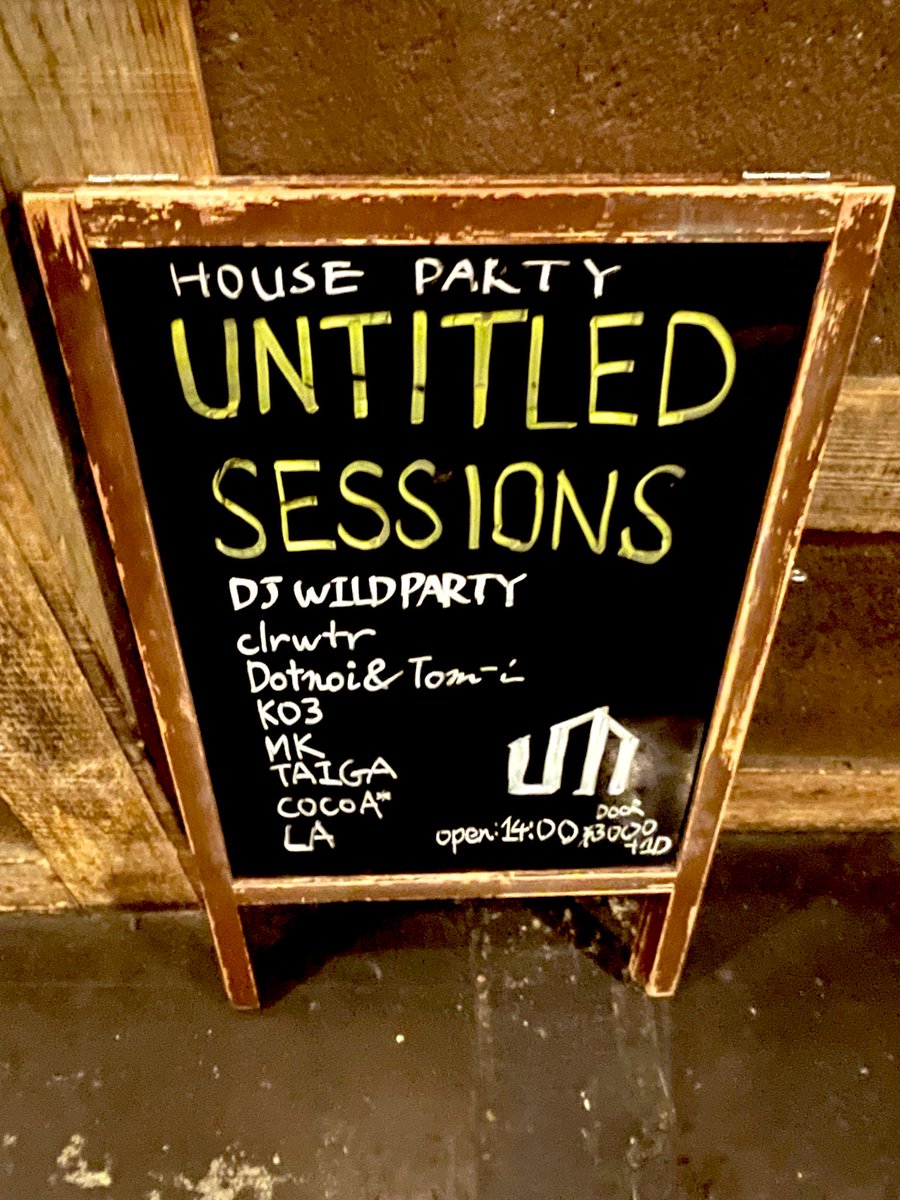 HOUSE PARTY
UNTITLED
SESSIONS
DJ WILDPARTY
clrwtr
Dotnoi& Tom-i
KO3
MK
TAIGA
COCOA*
LA
un
DOOR
open:14:00 ¥3000
+1D